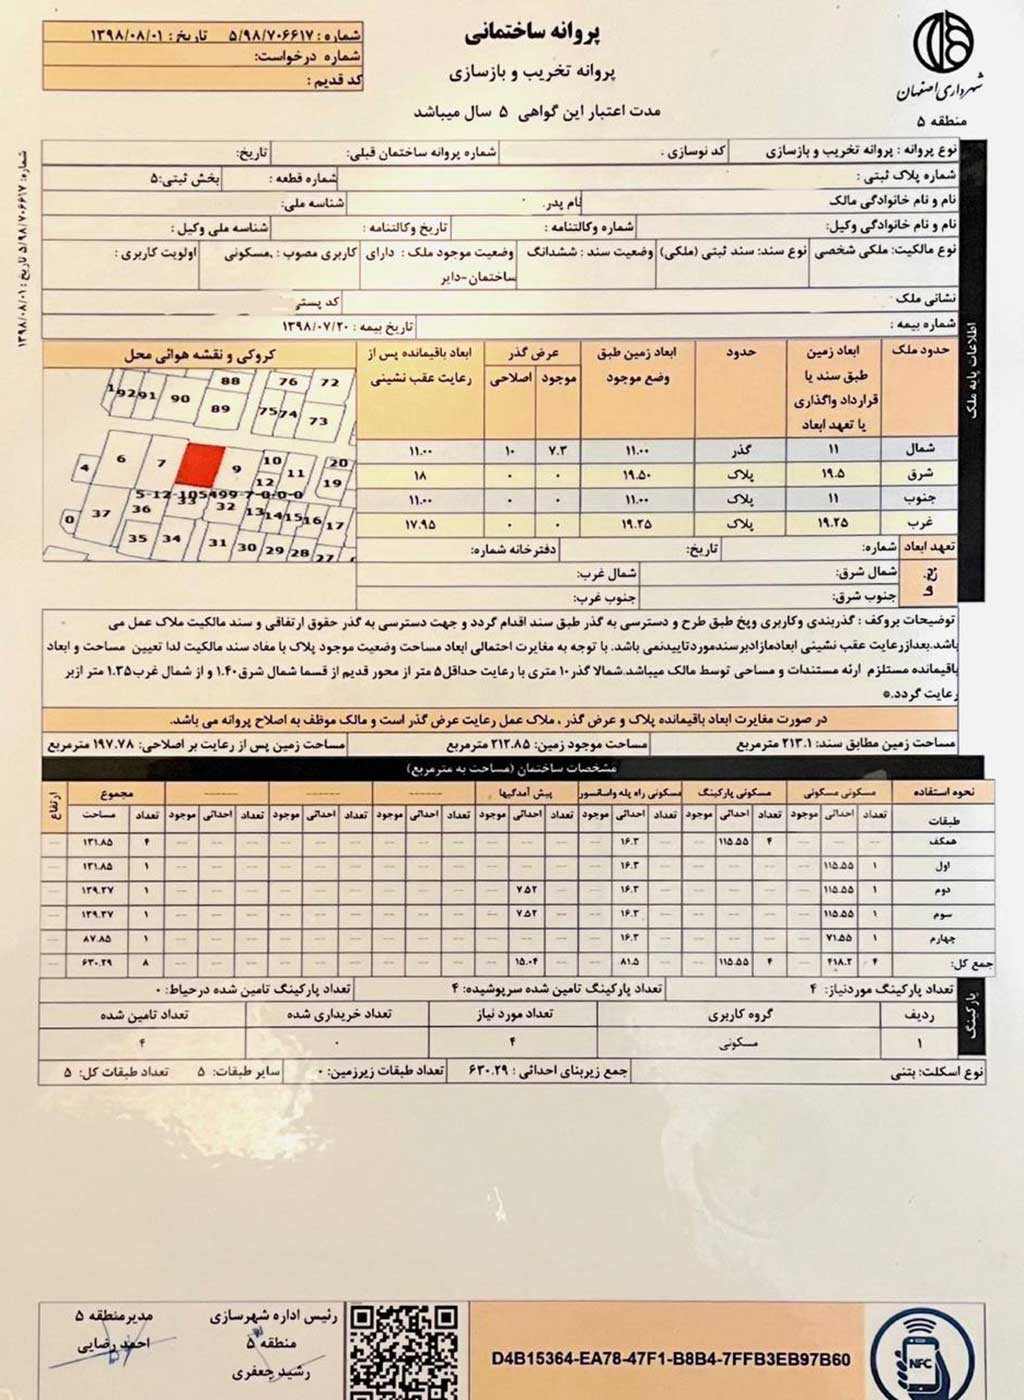 شهرداری اصفهان
منطقه ۵
پروانه ساختمانی
پروانه تخریب و بازسازی
مدت اعتبار این گواهی ۵ سال میباشد
شماره : ۵/۹۸/۷۰۶۶۱۷ تاریخ : ۱۳۹۸/۰۸/۰۱
شماره درخواست:
کد قدیم :
شماره: ۵/۹۸/۷۰۶۶۱۷ تاریخ: ۱۳۹۸/۰۸/۰۱
اطلاعات پایه ملک
نوع پروانه : پروانه تخریب و بازسازی کد نوسازی . شماره پروانه ساختمان قبلی: تاریخ:
شماره پلاک ثبتی : شماره قطعه : بخش ثبتی:۵
نام و نام خانوادگی مالک نام پدر. شناسه ملی:
نام و نام خانوادگی وکیل: شماره وکالتنامه : تاریخ وکالتنامه : شناسه ملی وکیل :
نوع مالکیت: ملکی شخصی نوع سند: سند ثبتی (ملکی) وضعیت سند : ششدانگ وضعیت موجود ملک : دارای کاربری مصوب : مسکونی اولویت کاربری :
ساختمان-دایر
نشانی ملک کد پستی
شماره بیمه : تاریخ بیمه : ۱۳۹۸/۰۷/۲۰
حدود ملک ابعاد زمین طبق سند یا قرارداد واگذاری یا تعهد ابعاد حدود ابعاد زمین طبق وضع موجود عرض گذر موجود اصلاحی ابعاد باقیمانده پس از رعایت عقب نشینی کروکی و نقشه هوائی محل
شمال ۱۱ گذر ۱۱.۰۰ ۷.۳ ۱۰ ۱۱.۰۰
شرق ۱۹.۵ پلاک ۱۹.۵۰ ۰ ۰ ۱۸
جنوب ۱۱ پلاک ۱۱.۰۰ ۰ ۰ ۱۱.۰۰
غرب ۱۹.۲۵ پلاک ۱۹.۲۵ ۰ ۰ ۱۷.۹۵
88 76 72
1 92 91 90 89 75 74 73
4 6 7 9 10 11 12 20 19
5-12-105499-7-0-0-0
0 37 36 33 32 13 14 15 16 17
35 34 31 30 29 28 27
تعهد ابعاد شماره: تاریخ: دفترخانه شماره:
پخ ها شمال شرق: شمال غرب:
جنوب شرق: جنوب غرب:
توضیحات بروکف : گذربندی وکاربری وپخ طبق طرح و دسترسی به گذر طبق سند اقدام گردد و جهت دسترسی به گذر حقوق ارتفاقی و سند مالکیت ملاک عمل می
باشد.بعدازرعایت عقب نشینی ابعادمازادبرسندموردتاییدنمی باشد. با توجه به مغایرت احتمالی ابعاد مساحت وضعیت موجود پلاک با مفاد سند مالکیت لدا تعیین مساحت و ابعاد
باقیمانده مستلزم ارئه مستندات و مساحی توسط مالک میباشد.شمالا گذر۱۰ متری با رعایت حداقل۵ متر از محور قدیم از قسما شمال شرق۱.۴۰ و از شمال غرب۱.۳۵ متر ازبر
رعایت گردد.*
در صورت مغایرت ابعاد باقیمانده پلاک و عرض گذر ، ملاک عمل رعایت عرض گذر است و مالک موظف به اصلاح پروانه می باشد.
مساحت زمین مطابق سند: ۲۱۳.۱ مترمربع مساحت موجود زمین: ۲۱۲.۸۵ مترمربع مساحت زمین پس از رعایت بر اصلاحی: ۱۹۷.۷۸ مترمربع
مشخصات ساختمان (مساحت به مترمربع)
نحوه استفاده مسکونی مسکونی مسکونی پارکینگ مسکونی راه پله واسانسور پیش آمدگیها ------ ------ ------ مجموع ارتفاع
طبقات تعداد احداثی موجود تعداد احداثی موجود تعداد احداثی موجود تعداد احداثی موجود تعداد احداثی موجود تعداد احداثی موجود تعداد احداثی موجود تعداد مساحت
همکف --- --- --- ۴ ۱۱۵.۵۵ --- --- ۱۶.۳ --- --- --- --- ۴ ۱۳۱.۸۵ ---
اول ۱ ۱۱۵.۵۵ --- --- --- --- --- ۱۶.۳ --- --- --- --- ۱ ۱۳۱.۸۵ ---
دوم ۱ ۱۱۵.۵۵ --- --- --- --- --- ۱۶.۳ --- --- ۷.۵۲ --- ۱ ۱۳۹.۳۷ ---
سوم ۱ ۱۱۵.۵۵ --- --- --- --- --- ۱۶.۳ --- --- ۷.۵۲ --- ۱ ۱۳۹.۳۷ ---
چهارم ۱ ۷۱.۵۵ --- --- --- --- --- ۱۶.۳ --- --- --- --- ۱ ۸۷.۸۵ ---
جمع کل: ۴ ۴۱۸.۲ --- ۴ ۱۱۵.۵۵ --- --- ۸۱.۵ --- --- ۱۵.۰۴ --- ۸ ۶۳۰.۲۹ ---
پارکینگ
تعداد پارکینگ موردنیاز: ۴ تعداد پارکینگ تامین شده سرپوشیده: ۴ تعداد پارکینگ تامین شده درحیاط: ۰
ردیف گروه کاربری تعداد مورد نیاز تعداد خریداری شده تعداد تامین شده
۱ مسکونی ۴ ۰ ۴
نوع اسکلت: بتنی جمع زیربنای احداثی : ۶۳۰.۲۹ تعداد طبقات زیرزمین: ۰ سایر طبقات: ۵ تعداد طبقات کل: ۵
NFC
D4B15364-EA78-47F1-B8B4-7FFB3EB97B60
رئیس اداره شهرسازی
منطقه ۵
رشید جعفری
مدیرمنطقه ۵
احمد رضایی